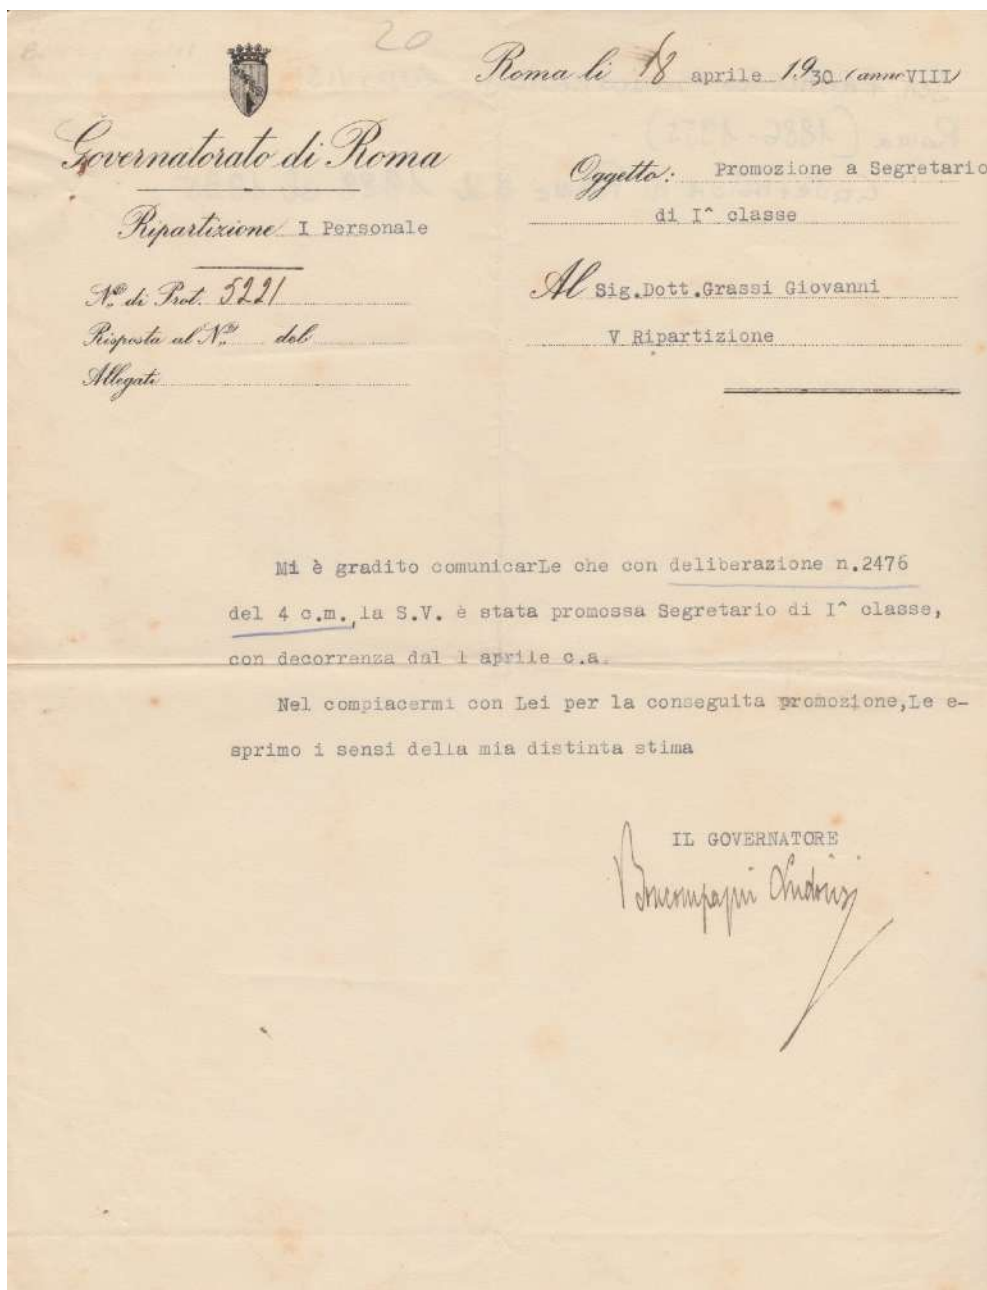 20
Roma li 18 aprile 1930 (anno VIII)
Governatorato di Roma
Ripartizione I Personale
N.º di Prot. 5221
Risposta al N.º del
Allegati
Oggetto: Promozione a Segretario
di I^ classe
Al Sig.Dott.Grassi Giovanni
V Ripartizione
Mi è gradito comunicarLe che con deliberazione n.2476
del 4 c.m., la S.V. è stata promossa Segretario di I^ classe,
con decorrenza dal 1 aprile c.a.
Nel compiacermi con Lei per la conseguita promozione,Le e-
sprimo i sensi della mia distinta stima
IL GOVERNATORE
Boncompagni Ludovisi